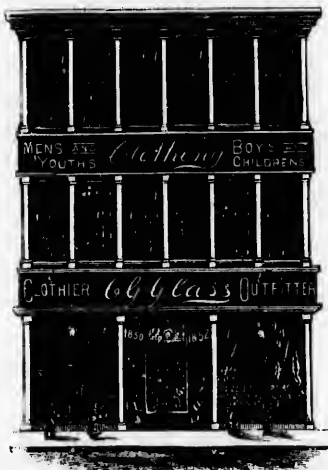 MENS AND YOUTHS Clothing BOYS AND CHILDRENS
CLOTHIER C G Glass OUTFITTER
1850 1852